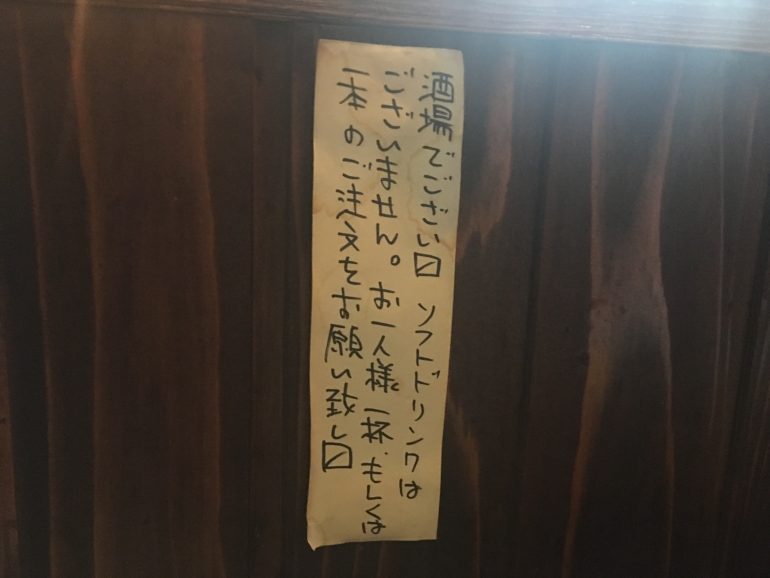 酒場でござい〼 ソフトドリンクは
ございません。お一人様一杯、もしくは
一本のご注文をお願い致し〼